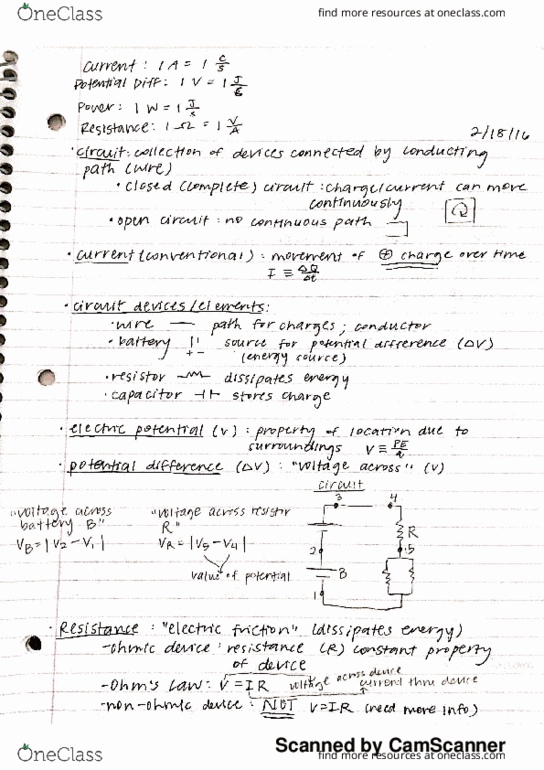 OneClass
find more resources at oneclass.com
Current : 1 A = 1 C/s
Potential Diff: 1 V = 1 J/C
Power: 1 W = 1 J/s
Resistance: 1 Ω = 1 V/A
2/18/16
· circuit: collection of devices connected by conducting
path (wire)
· closed (complete) circuit : charge/current can move
continuously
· open circuit : no continuous path
· current (conventional) : movement of ⊕ charge over time
I ≡ ΔQ/Δt
· circuit devices/elements:
· wire — path for charges ; conductor
· battery source for potential difference (ΔV)
+ - (energy source)
· resistor dissipates energy
· capacitor stores charge
· electric potential (V) : property of location due to
surroundings V ≡ PE/q
· potential difference (ΔV) : "voltage across" (V)
circuit
3 4
"voltage across
battery B"
VB = |V2 - V1|
"voltage across resistor
R"
VR = |V5 - V4|
value of potential
R
2 5
B
1
· Resistance : "electric friction" (dissipates energy)
-ohmic device : resistance (R) constant property
of device
-Ohm's Law: V = IR voltage across device
current thru device
-non-ohmic device : NOT V=IR (need more info)
Scanned by CamScanner
OneClass
find more resources at oneclass.com